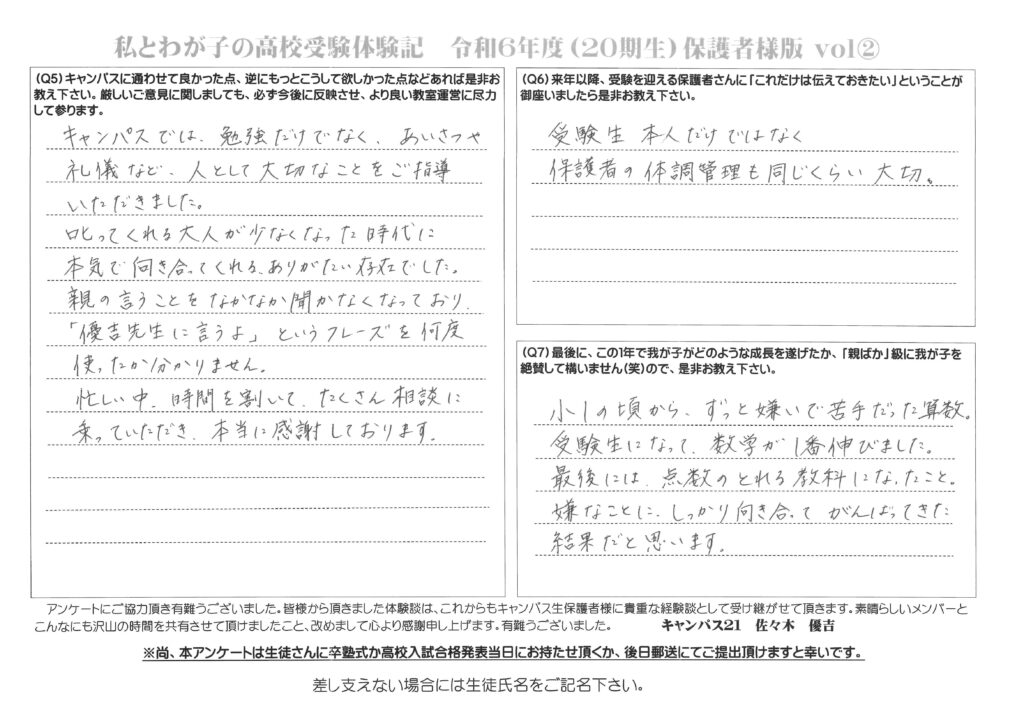 私とわが子の高校受験体験記　令和6年度（20期生）保護者様版 vol②
（Q5）キャンパスに通わせて良かった点、逆にもっとこうして欲しかった点などあれば是非お
教え下さい。厳しいご意見に関しましても、必ず今後に反映させ、より良い教室運営に尽力
して参ります。
キャンパスでは、勉強だけでなく、あいさつや
礼儀など、人として大切なことをご指導
いただきました。
叱ってくれる大人が少なくなった時代に
本気で向き合ってくれる、ありがたい存在でした。
親の言うことをなかなか聞かなくなっており、
「優吉先生に言うよ」というフレーズを何度
使ったか分かりません。
忙しい中、時間を割いて、たくさん相談に
乗っていただき、本当に感謝しております。
（Q6）来年以降、受験を迎える保護者さんに「これだけは伝えておきたい」ということが
御座いましたら是非お教え下さい。
受験生本人だけではなく
保護者の体調管理も同じくらい大切。
（Q7）最後に、この1年で我が子がどのような成長を遂げたか、「親ばか」級に我が子を
絶賛して構いません（笑）ので、是非お教え下さい。
小1の頃から、ずっと嫌いで苦手だった算数。
受験生になって、数学が1番伸びました。
最後には、点数のとれる教科になったこと。
嫌なことに、しっかり向き合って がんばってきた
結果だと思います。
アンケートにご協力頂き有難うございました。皆様から頂きました体験談は、これからもキャンパス生保護者様に貴重な経験談として受け継がせて頂きます。素晴らしいメンバーと
こんなにも沢山の時間を共有させて頂けましたこと、改めまして心より感謝申し上げます。有難うございました。　キャンパス21　佐々木　優吉
※尚、本アンケートは生徒さんに卒塾式か高校入試合格発表当日にお持たせ頂くか、後日郵送にてご提出頂けますと幸いです。
差し支えない場合には生徒氏名をご記名下さい。